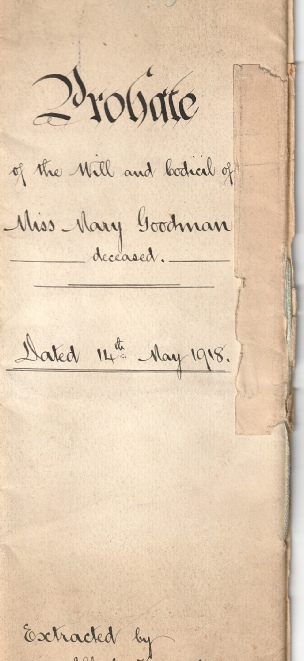 Probate
of the Will and Codicil of
Miss Mary Goodman
deceased.
Dated 14th May 1918.
Extracted by